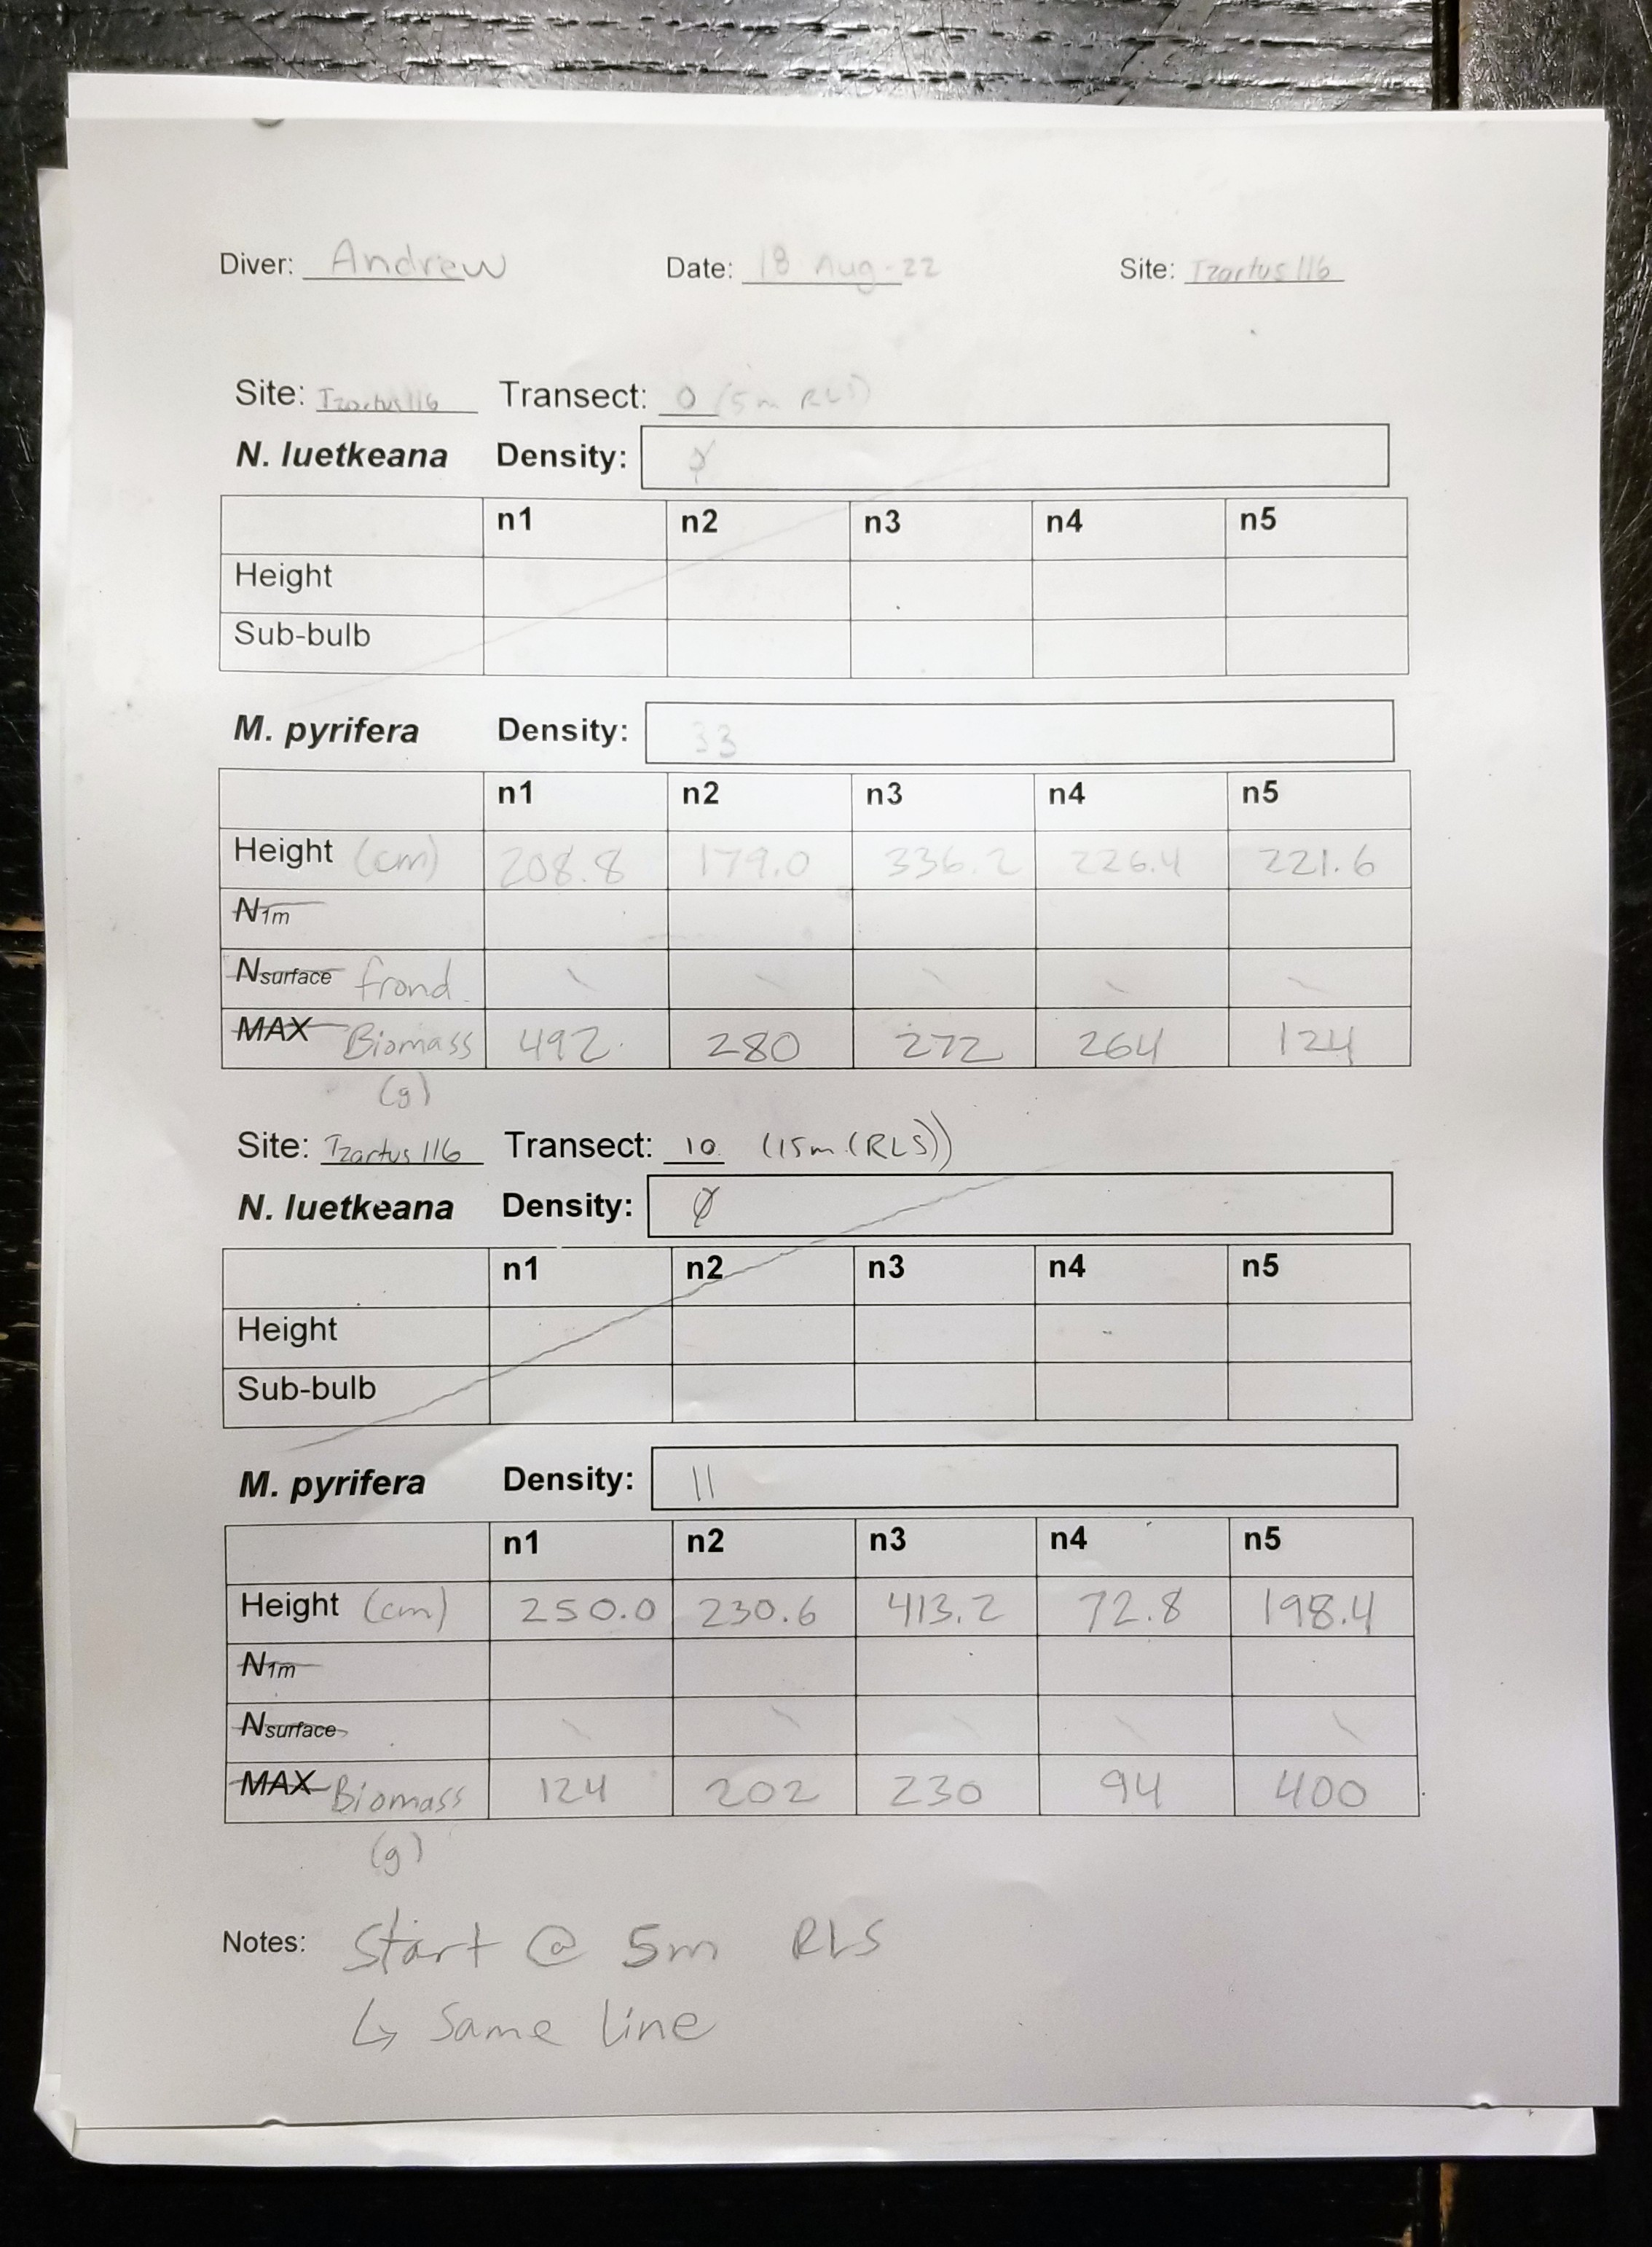 Diver: Andrew Date: 18 Aug-22 Site: Tzartus 116
Site: Tzartus 116 Transect: 0 (5m RLS)
N. luetkeana Density: Ø
n1 n2 n3 n4 n5
Height
Sub-bulb
M. pyrifera Density: 33
n1 n2 n3 n4 n5
Height (cm) 208.8 179.0 336.2 226.4 221.6
N1m
Nsurface frond \ \ \ \ \
MAX Biomass 492 280 272 264 124
(g)
Site: Tzartus 116 Transect: 10 (15m (RLS))
N. luetkeana Density: Ø
n1 n2 n3 n4 n5
Height
Sub-bulb
M. pyrifera Density: 11
n1 n2 n3 n4 n5
Height (cm) 250.0 230.6 413.2 72.8 198.4
N1m
Nsurface \ \ \ \ \
MAX Biomass 124 202 230 94 400
(g)
Notes: Start @ 5m RLS
↳ Same line